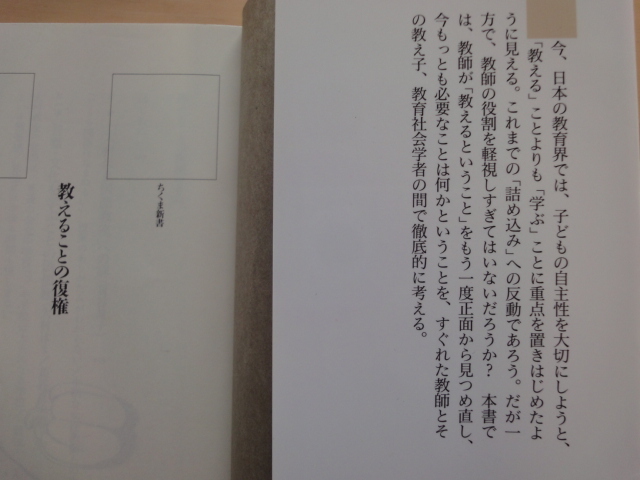 今、日本の教育界では、子どもの自主性を大切にしようと、
「教える」ことよりも「学ぶ」ことに重点を置きはじめたよ
うに見える。これまでの「詰め込み」への反動であろう。だが一
方で、教師の役割を軽視しすぎてはいないだろうか？　本書で
は、教師が「教えるということ」をもう一度正面から見つめ直し、
今もっとも必要なことは何かということを、すぐれた教師とそ
の教え子、教育社会学者の間で徹底的に考える。
ちくま新書
教えることの復権